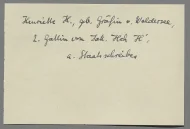 Henriette H., gb. Gräfin v. Waldersee,
2. Gattin von Joh. "Hch H",
a. Staatschreiber